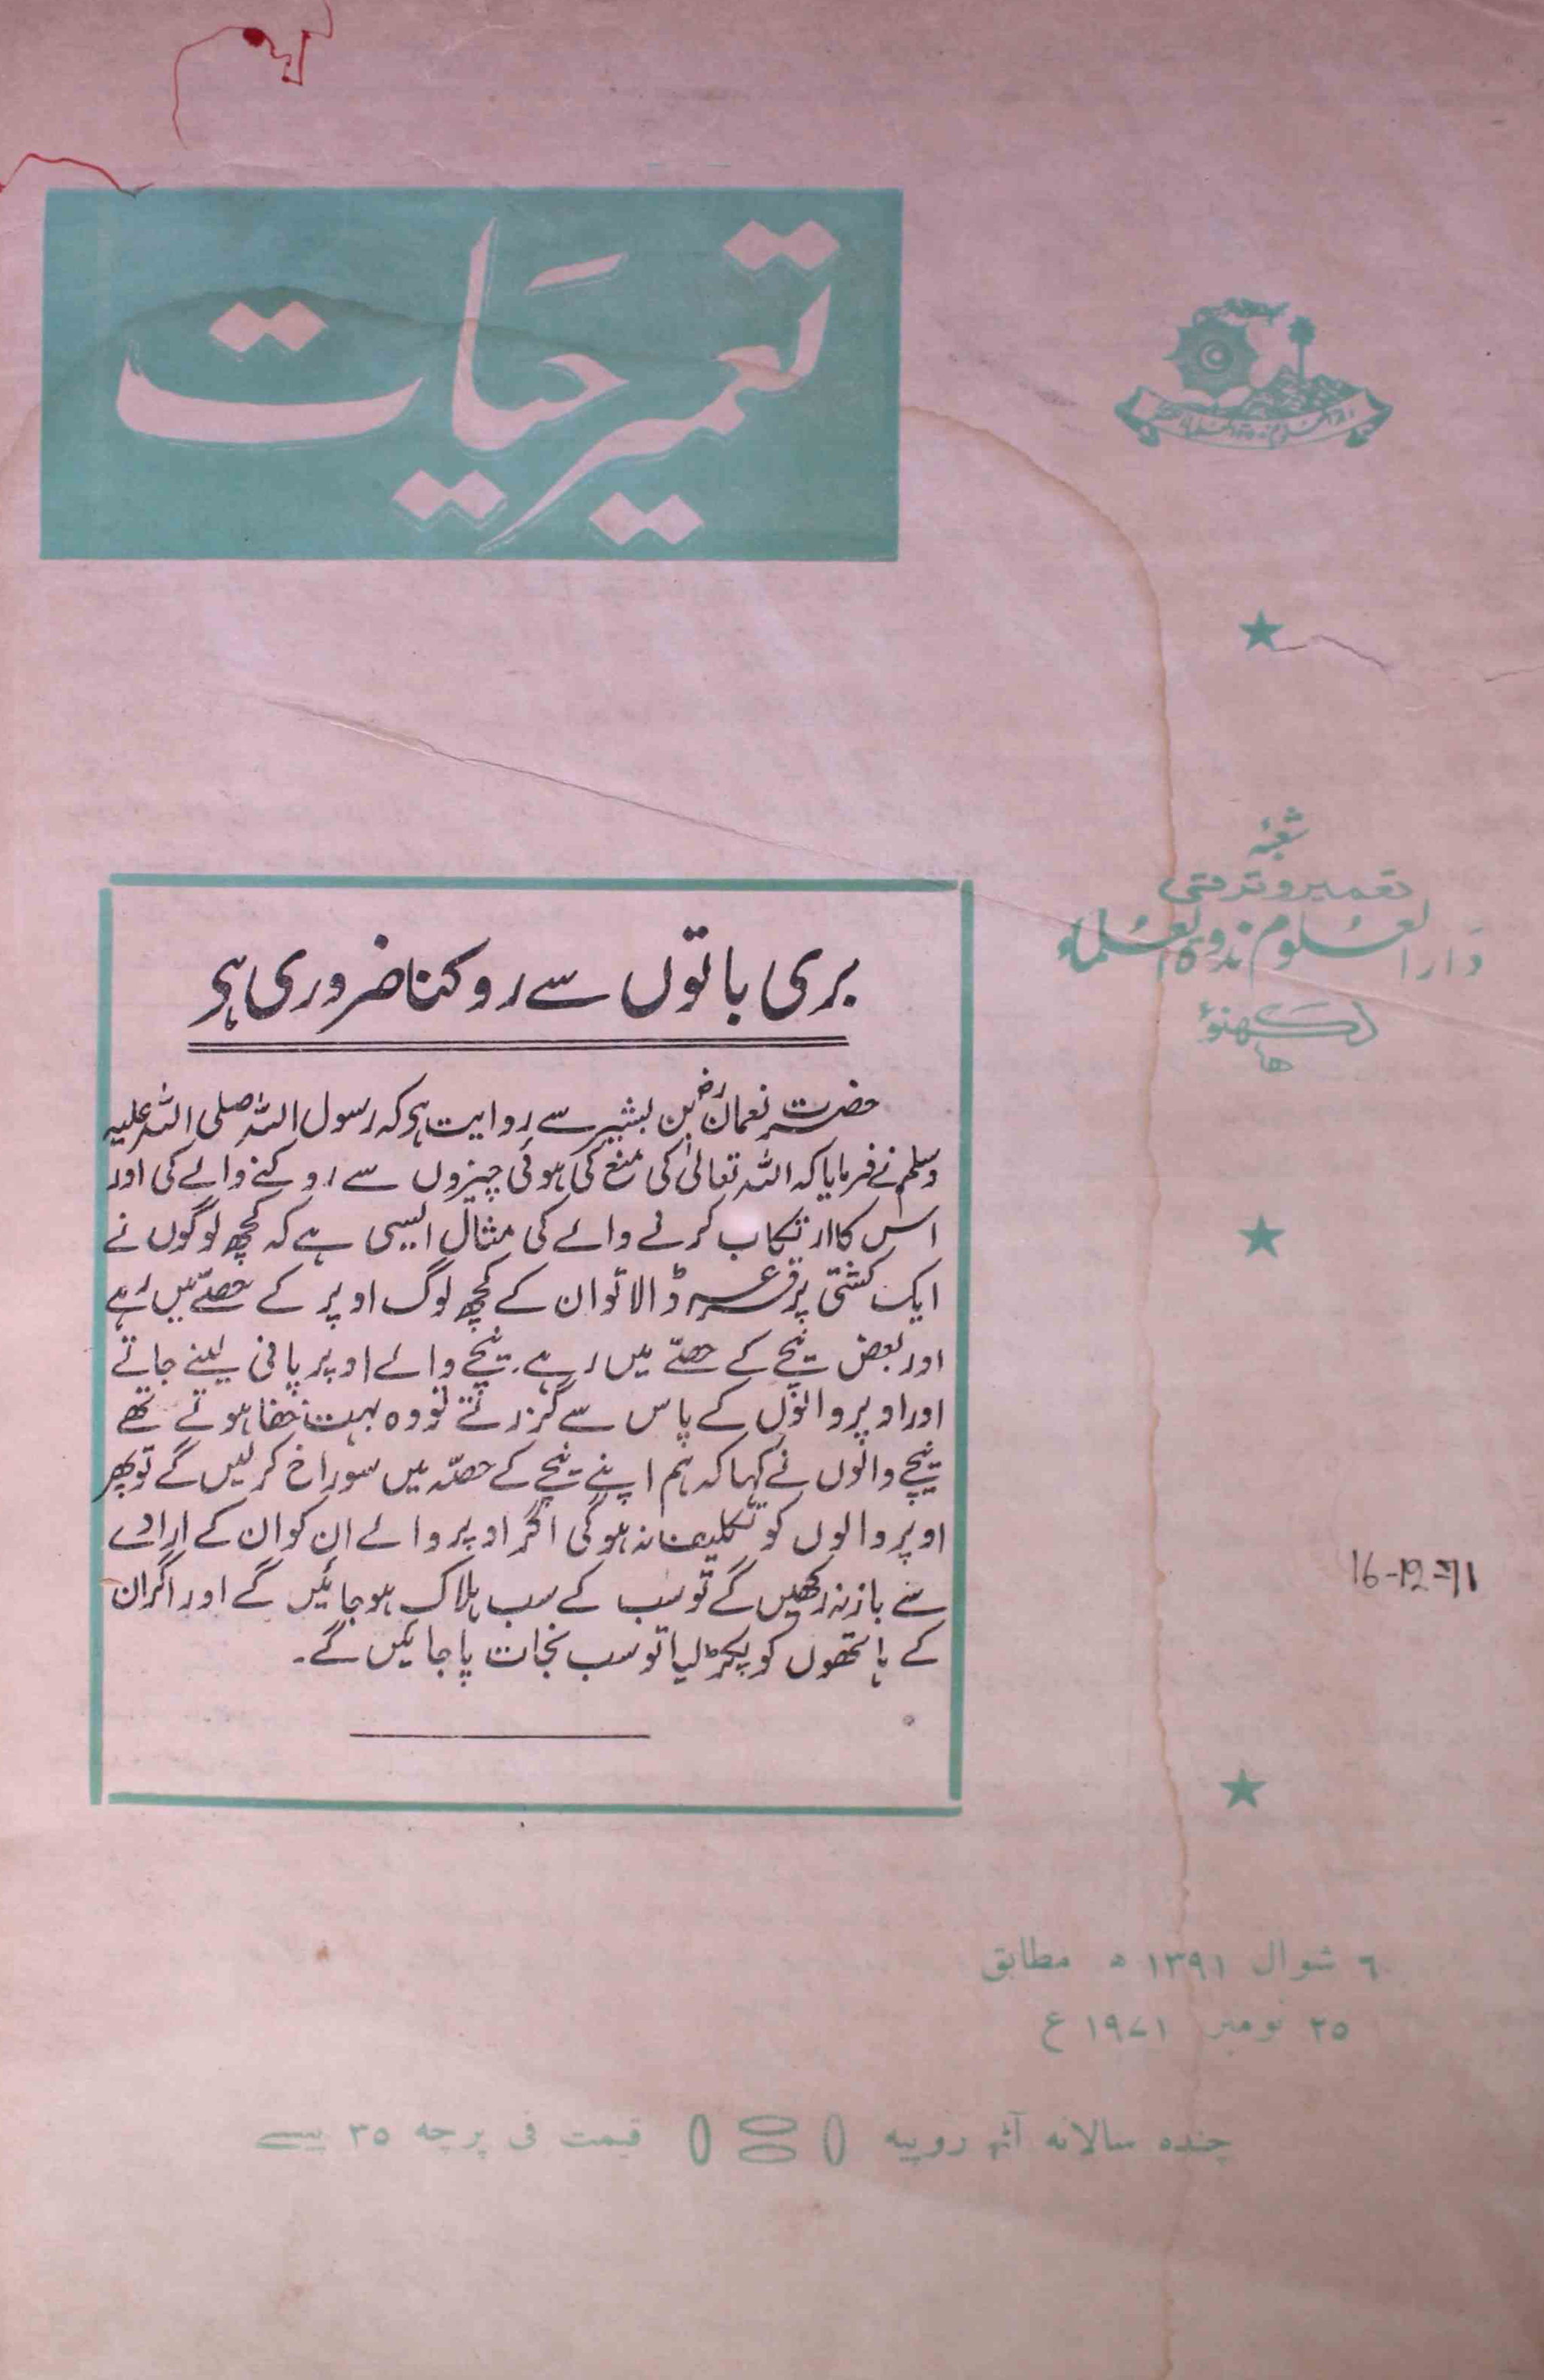 تعمیر حیات
شعبۂ
تعمیر و ترقی
دار العلوم ندوۃ العلماء
لکھنؤ
بری باتوں سے روکنا ضروری ہی
حضرت نعمانؓ بن بشیر سے روایت ہی کہ رسول اللہ صلی اللہ علیہ
وسلم نے فرمایا کہ اللہ تعالیٰ کی منع کی ہوئی چیزوں سے روکنے والے کی اور
اس کا ارتکاب کرنے والے کی مثال ایسی ہے کہ کچھ لوگوں نے
ایک کشتی پر قرعہ ڈالا تو ان کے کچھ لوگ اوپر کے حصّے میں رہے
اور بعض نیچے کے حصّے میں رہے۔ نیچے والے اوپر پانی لینے جاتے
اور اوپر والوں کے پاس سے گزرتے تو وہ بہت خفا ہوتے تھے
نیچے والوں نے کہا کہ ہم اپنے نیچے کے حصّہ میں سوراخ کر لیں گے تو پھر
اوپر والوں کو تکلیف نہ ہوگی اگر اوپر والے ان کو ان کے ارادے
سے باز نہ رکھیں گے تو سب کے سب ہلاک ہو جائیں گے اور اگر ان
کے ہاتھوں کو پکڑ لیا تو سب نجات پا جائیں گے۔
16-12-71
٦ شوال ١٣٩١ ھ مطابق
٢٥ نومبر ١٩٧١ ع
چندہ سالانہ آٹھ روپیہ قیمت فی پرچہ ٣٥ پیسے